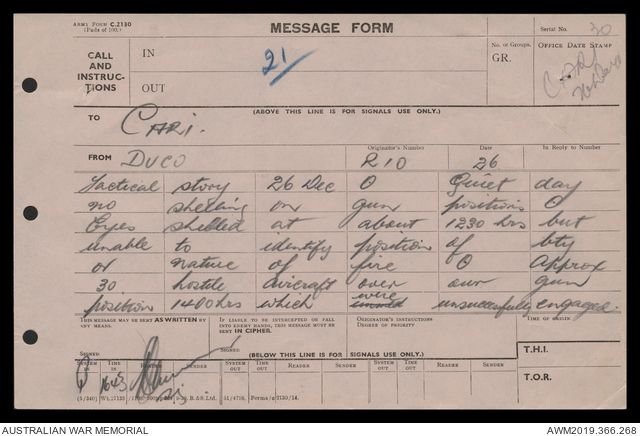 ARMY FORM C.2130
(Pads of 100.)
MESSAGE FORM
Serial No. 30
CALL AND INSTRUC-TIONS
IN
OUT
21
No. of Groups.
GR.
OFFICE DATE STAMP
(ABOVE THIS LINE IS FOR SIGNALS USE ONLY.)
TO CARI.
FROM DUCO
Originator's Number R10
Date 26
In Reply to Number
Tactical story 26 Dec O Quiet day
no shelling on gun positions O
Eyes shelled at about 1230 hrs but
unable to identify position of bty
or nature of fire O Approx
30 hostile aircraft over our gun
position 1400 hrs which were unsuccessfully engaged.
THIS MESSAGE MAY BE SENT AS WRITTEN BY ANY MEANS.
IF LIABLE TO BE INTERCEPTED OR FALL INTO ENEMY HANDS, THIS MESSAGE MUST BE SENT IN CIPHER.
ORIGINATOR'S INSTRUCTIONS
DEGREE OF PRIORITY
TIME OF ORIGIN
SIGNED
SIGNED
(BELOW THIS LINE IS FOR SIGNALS USE ONLY.)
T.H.I.
SYSTEM IN
TIME IN
READER
SENDER
SYSTEM OUT
TIME OUT
READER
SENDER
SYSTEM OUT
TIME OUT
READER
SENDER
1643
T.O.R.
AUSTRALIAN WAR MEMORIAL
AWM2019.366.268